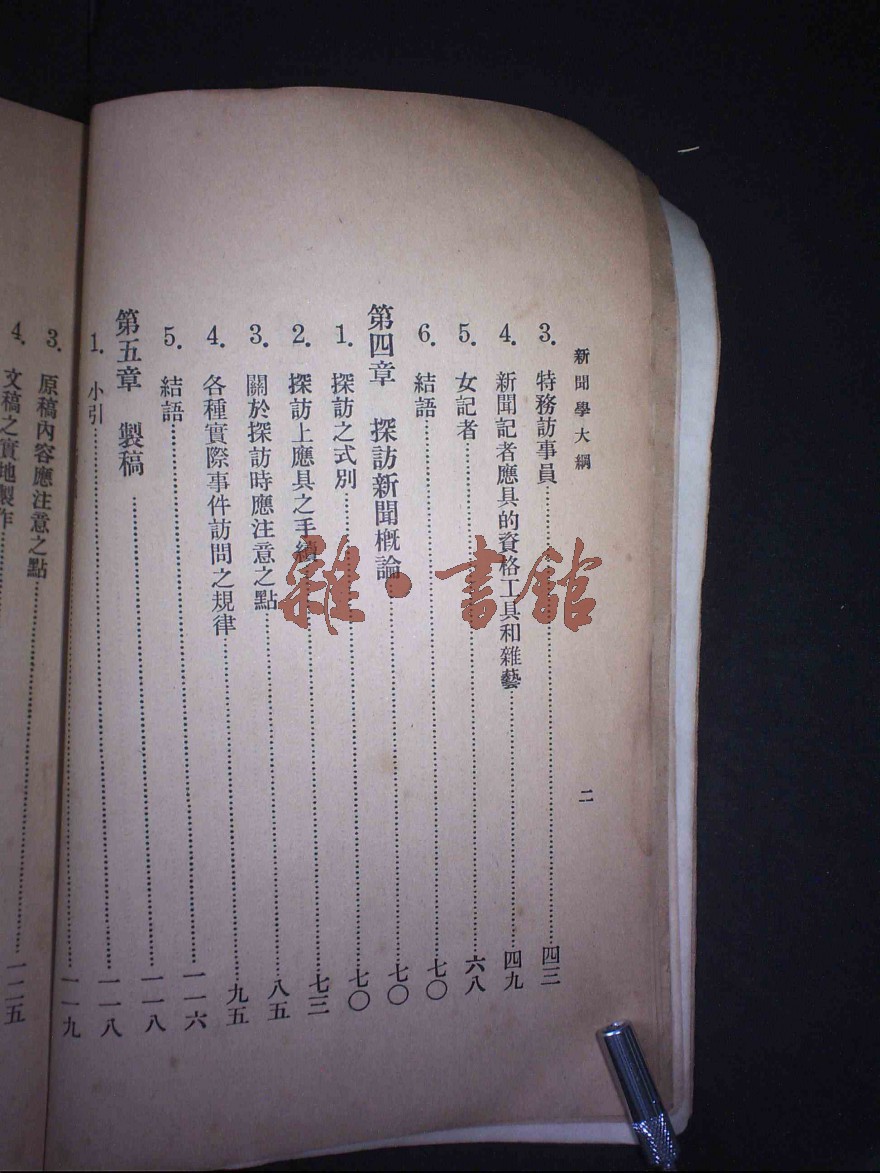 新聞學大綱
二
3. 特務訪事員……四三
4. 新聞記者應具的資格工具和雜藝……四九
5. 女記者……六八
6. 結語……七〇
第四章 探訪新聞槪論……七〇
1. 探訪之式別……七〇
2. 探訪上應具之手續……七三
3. 關於探訪時應注意之點……八五
4. 各種實際事件訪問之規律……九五
5. 結語……一一六
第五章 製稿……一一八
1. 小引……一一八
3. 原稿內容應注意之點……一一九
4. 文稿之實地製作……一二五
雜·書館